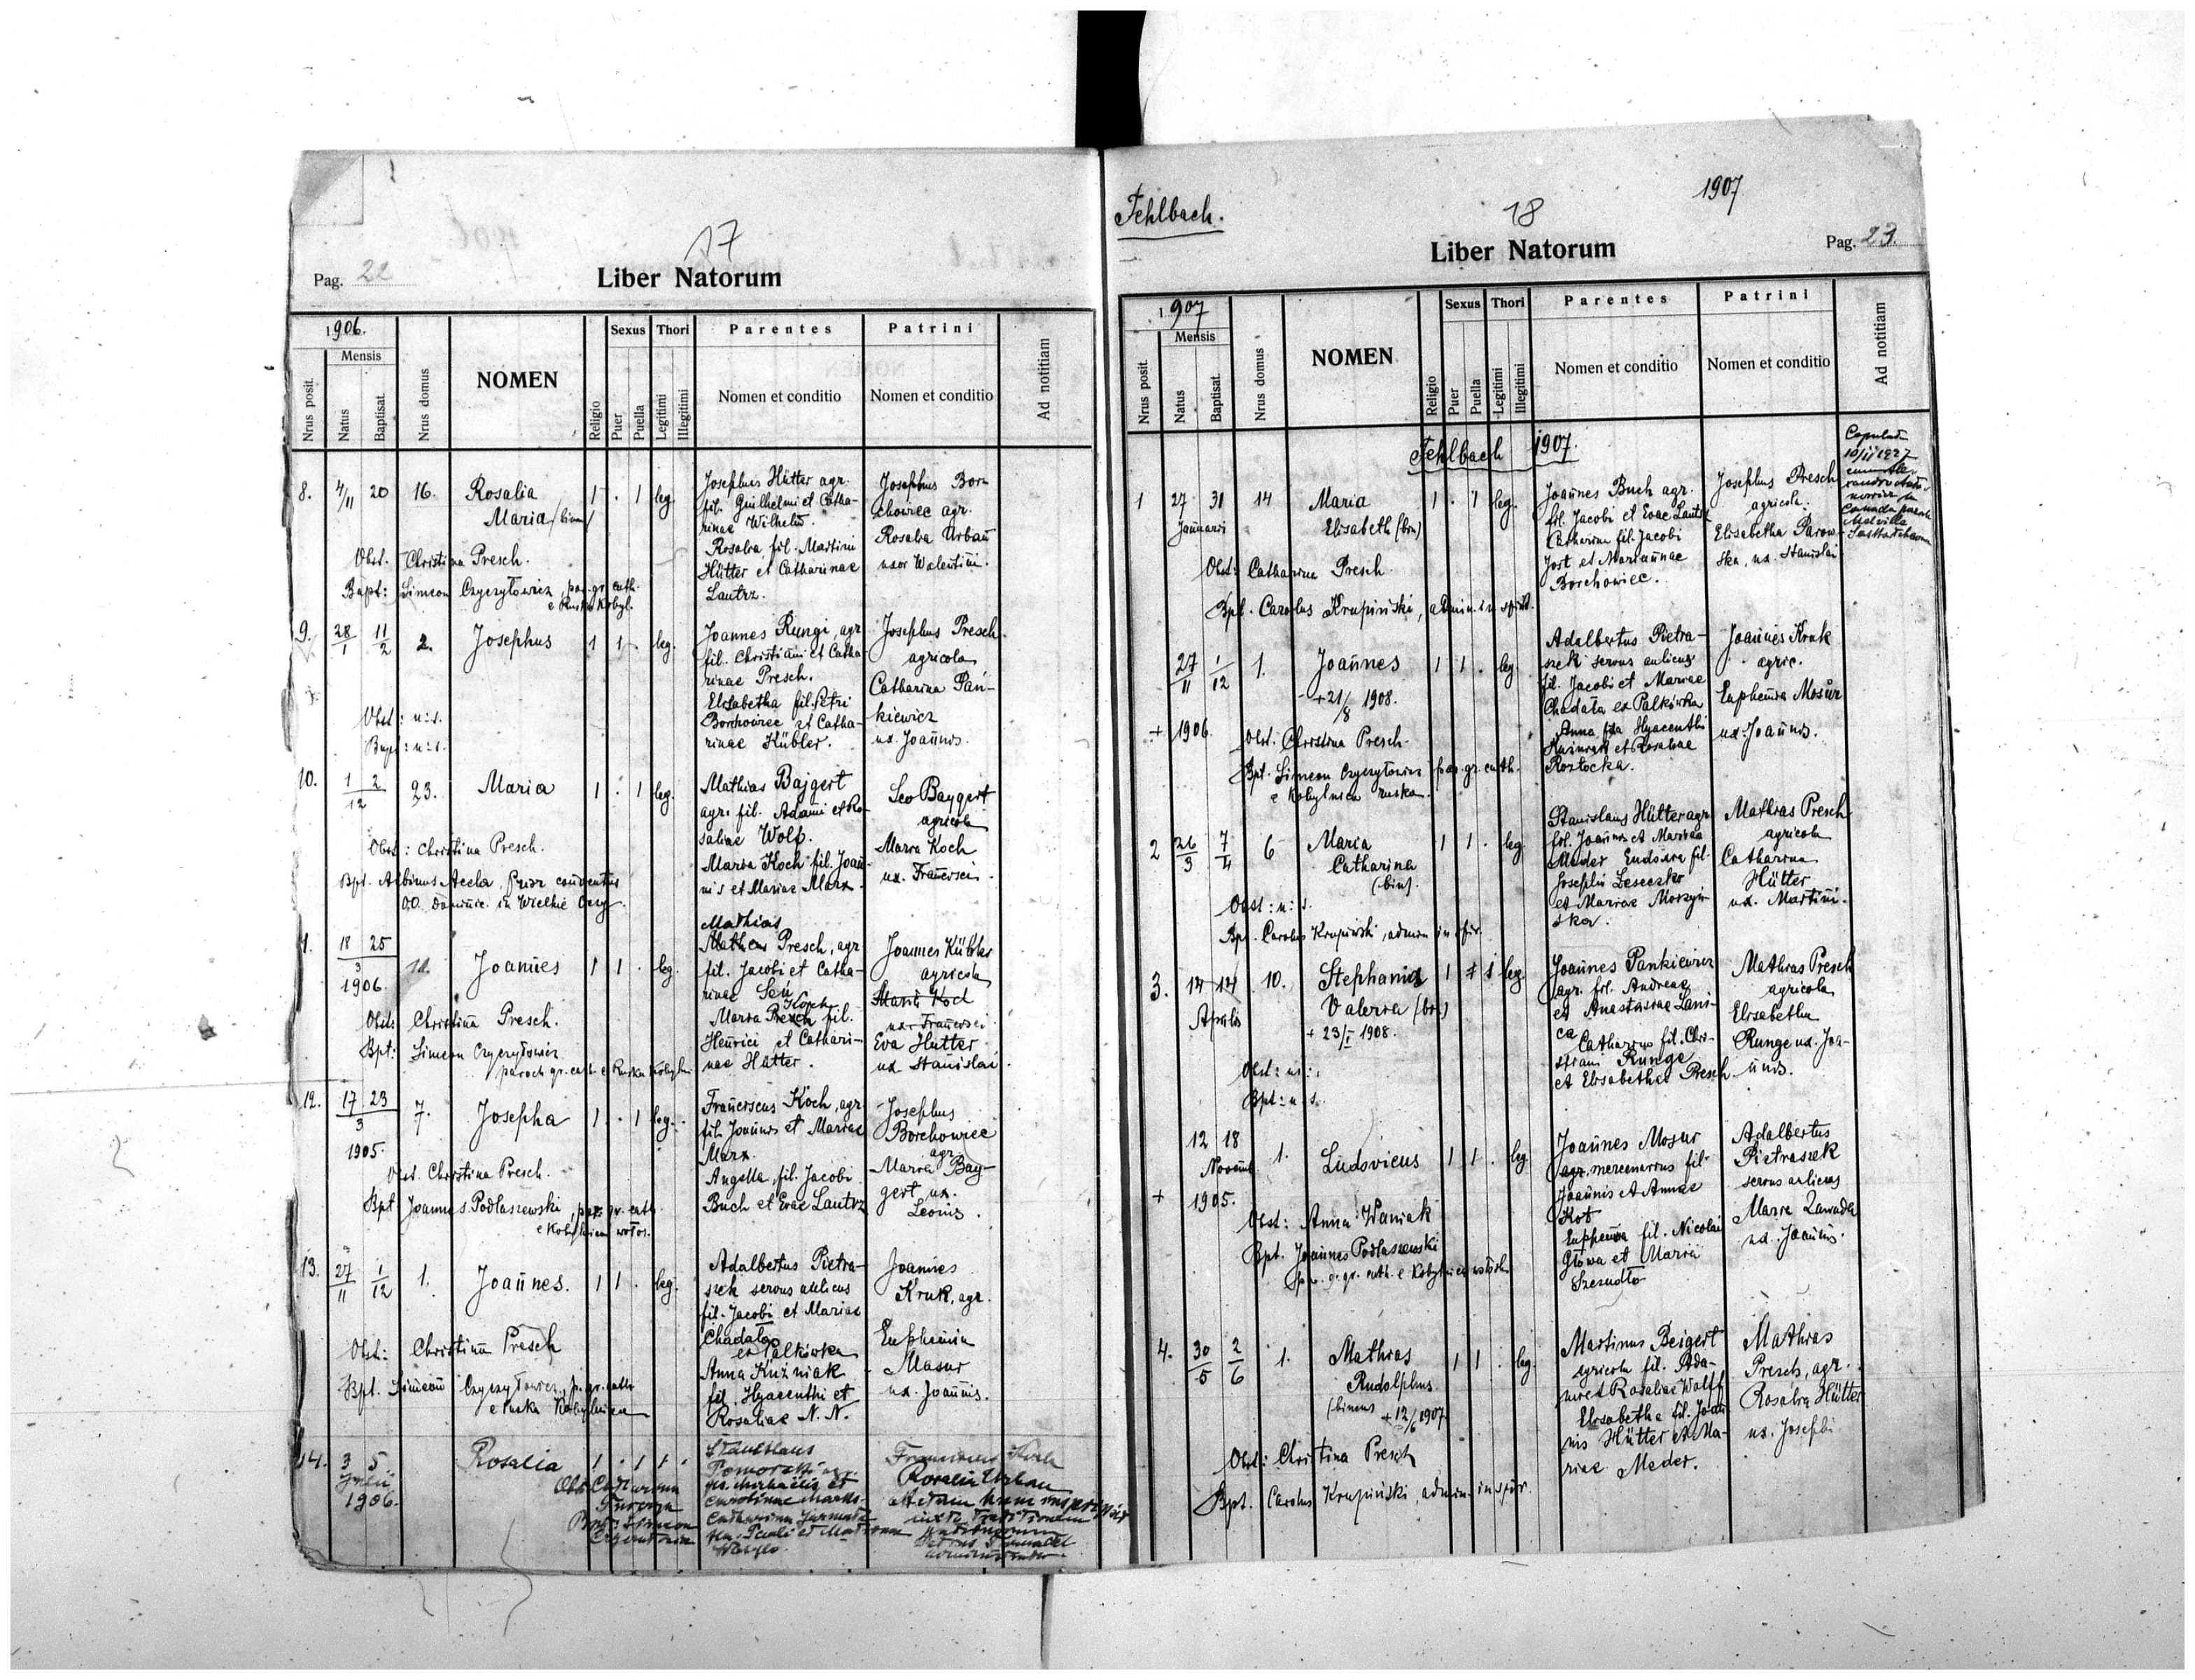 17
Pag. 22
Liber Natorum
1906.
Mensis
Nrus posit.
Natus
Baptisat.
Nrus domus
NOMEN
Religio
Sexus
Puer
Puella
Thori
Legitimi
Illegitimi
Parentes
Nomen et conditio
Patrini
Nomen et conditio
Ad notitiam
8. 4/II 20 16. Rosalia 1 . 1 leg.
Maria
Josephus Hütter agr.
fil. Guilhelmi et Catha-
rinae
Rosalia, fil. Martini
Hütter et Catharinae
Lautrz.
Josephus Bor-
chowiec agr.
Rosalia Urban
uxor Walentini.
Obst. Christina Presch.
Bapt: Simeon Czyczyłowicz, par. gr. cath.
e Ruska Kobyl.
9. 28/1 11/2 2. Josephus 1 1 . leg.
Joannes Rungi, agr
fil. Christiani et Catha-
rinae Presch.
Elisabetha fil. Petri
Borchowiec et Catha-
rinae Kübler.
Josephus Presch
agricola
Catharina Pan-
kiewicz
ux. Joannis.
Obst: u: s.
Bapt: u: s.
10. 1 2/12 23. Maria 1 . 1 leg.
Mathias Bajgert
agr. fil. Adami et Ro-
saliae Wolf.
Maria Koch fil. Joan-
nis et Mariae Marx.
Leo Baygert
agricola
Maria Koch
ux. Francisci.
Obst: Christina Presch.
Bpt. Albinus Acela, Prior conventus
OO. Dominic. in Wielkie Oczy.
11. 18 25/3 1906. 11. Joannes 1 1 . leg.
Mathias
Matheus Presch, agr
fil. Jacobi et Catha-
rinae
Koch
Maria Presch fil.
Henrici et Cathari-
nae Hütter.
Joannes Kübler
agricola
Maria Koch
ux. Francisci
Eva Hutter
ux. Stanislai.
Obst: Christina Presch.
Bpt: Simeon Czyczyłowicz
paroch gr. cath e Ruska Kobyln
12. 17 23/3 1905. 7. Josepha 1 . 1 leg.
Franciscus Koch, agr
fil. Joannis et Mariae
Marx.
Angella, fil. Jacobi
Buch et Evae Lautrz
Josephus
Borchowiec
agr.
Maria Bay-
gert ux.
Leonis.
Obst. Christina Presch.
Bpt Joannes Podlaszewski, par. gr. cath
e Kobylnica wołos.
13. 27/11 1/12 1. Joannes. 1 1 . leg.
Adalbertus Pietra-
szek servus aulicus
fil. Jacobi et Mariae
Chadała
ex Pałkówka
Anna Kuźniak
fil. Hyacenthi et
Rosaliae N. N.
Joannes
Kruk, agr.
Euphemia
Masur
ux. Joannis.
Obst: Christina Presch
Bpt. Simeon Czyczyłowicz, p. gr. cath
e ruska Kobylnica
14. 3 5 Julii 1906. Rosalia 1 . 1 1 .
Stanislaus
Pomorski agr.
fil. Michaelis et
Carolinae
Catharina
fil. Pauli et
Franciscus
Rosalia Urban
Obst. Catharina
Bpt: Simeon
Fehlbach.
1907
18
Liber Natorum
Pag. 23.
1907
Mensis
Nrus posit.
Natus
Baptisat.
Nrus domus
NOMEN
Religio
Sexus
Puer
Puella
Thori
Legitimi
Illegitimi
Parentes
Nomen et conditio
Patrini
Nomen et conditio
Ad notitiam
Fehlbach 1907.
1 27 31 Januarii 14 Maria 1 . 1 leg.
Elisabeth (bin)
Joannes Buch agr.
fil. Jacobi et Evae Lautrz
Catharina fil. Jacobi
Jost et Mariannae
Borchowiec.
Josephus Presch
agricola.
Elisabetha Parow-
ska, ux. Stanislai
Copulata
10/II 1927
Canada
Melville
Obst: Catharina Presch.
Bpt. Carolus Krupiński, admin. in spirit.
27/11 1/12 1. Joannes 1 1 . leg
+ 21/8 1908.
+ 1906.
Adalbertus Pietra-
szek servus aulicus
fil. Jacobi et Mariae
Chadała ex Pałkówka
Anna fila Hyacenthi
Kuźniak et Rosaliae
Roztocka.
Joannes Kruk
agric.
Euphemia Mosur
ux: Joannis.
Obst. Christina Presch.
Bpt. Simeon Czyczyłowicz par. gr. cath.
e Kobylnica ruska.
2 26/3 7/4 6 Maria 1 1 . leg.
Catharina
(bin).
Stanislaus Hütter agr
fil. Joannis et Mariae
Meder
Josephi Leseczko
et Mariae
Mathias Presch
agricola
Catharina
Hütter
ux. Martini.
Obst: u: s.
Bp. Carolus Krupiński, admin in spir.
3. 14 14 Aprilis 10. Stephania 1 1 leg.
Valeria (bin)
+ 23/I 1908.
Joannes Pankiewicz
agr. fil. Andreae
et Anastasiae Lani-
ca
Catharina fil. Chri-
stiani Runge
et Elisabethae Presch
Mathias Presch
agricola
Elisabetha
Runge ux. Joa-
nnis.
Obst: u: s.
Bpt: u: s.
12 18 Novemb 1. Ludovicus 1 1 . leg
+ 1905.
Joannes Mosur
agr. mercenarius fil.
Joannis et Annae
Kot
Euphemia fil. Nicolai
Głowa et Maria
Szemdło
Adalbertus
Pietraszek
servus aulicus
Maria Zawada
ux. Joannis.
Obst: Anna Waniak
Bpt. Joannes Podlaszewski
par. gr. cath. e Kobylnica wołosk
4. 30/5 2/6 1. Mathias 1 1 . leg.
Rudolphus
(binens + 12/6 1907
Martinus Beigert
agricola fil. Ada-
mi et Rosaliae Wolff
Elisabetha fil. Joan-
nis Hütter et Ma-
riae Meder.
Mathias
Presch, agr.
Rosalia Hütter
ux. Josephi
Obst: Christina Presch
Bpt. Carolus Krupiński, admin. in spir.